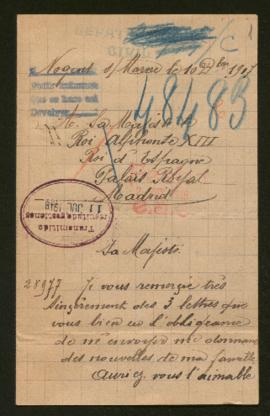 Nogent s/ Marne le 10 Xbre 1917
48483
A. Sa Majesté
Roi Alphonse XIII
Roi d'Espagne
Palais Royal
Madrid
11 JUL 1918
Sa Majesté
28977 Je vous remercie très
sincèrement des 3 lettres que
vous bien eu l'obligeance
de m'envoyer me donnant
des nouvelles de ma famille
vous l'aimable